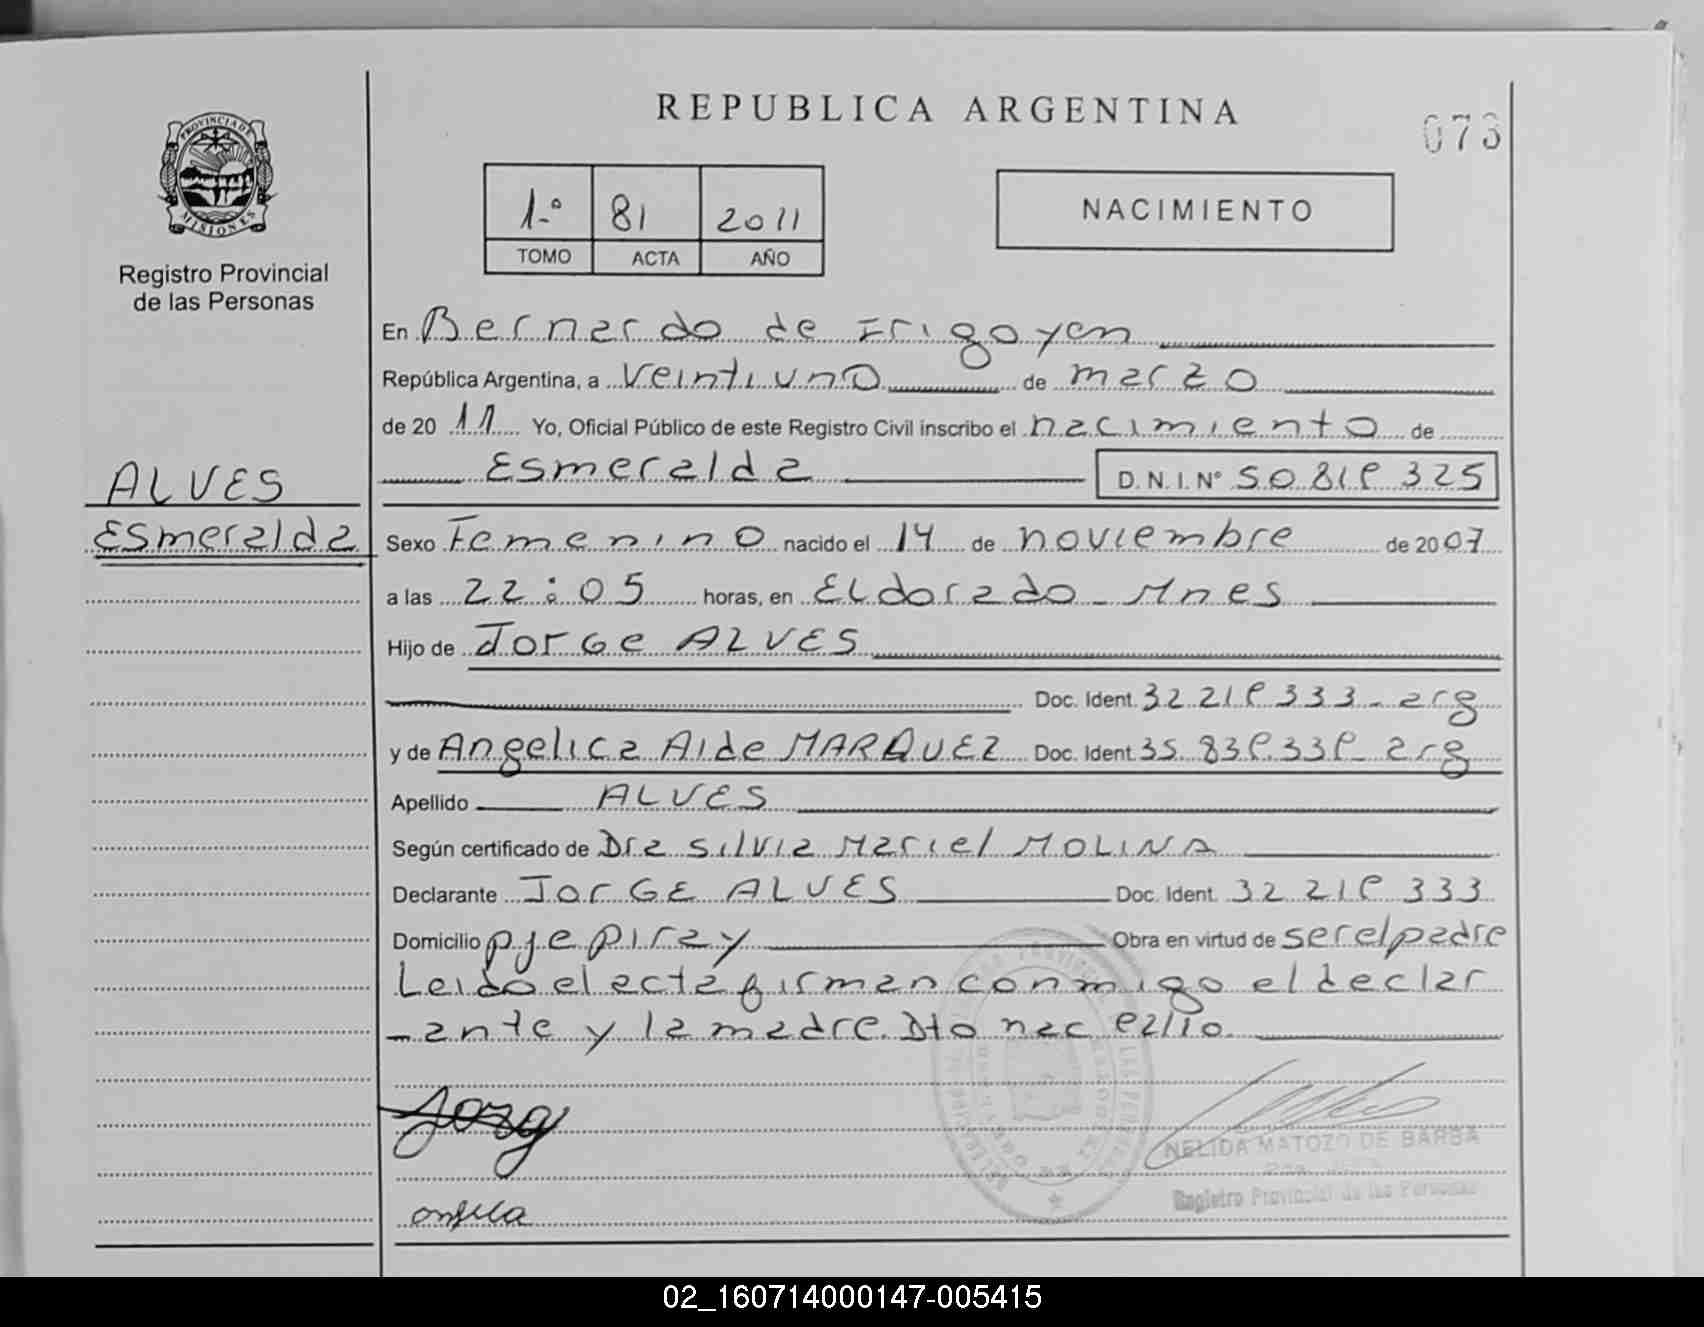 REPUBLICA ARGENTINA
073
PROVINCIA DE
MISIONES
Registro Provincial
de las Personas
1.º 81 2011
TOMO ACTA AÑO
NACIMIENTO
En Bernardo de Irigoyen
República Argentina, a Veintiuno de marzo
de 20 11 Yo, Oficial Público de este Registro Civil inscribo el nacimiento de
Esmeralda D.N.I.Nº 50.819.325
ALVES
Esmeralda
Sexo Femenino nacido el 14 de noviembre de 2007
a las 22:05 horas, en ELdorado - Mnes
Hijo de Jorge ALVES
Doc. Ident. 32.219.333 - arg
y de Angelica Aide MARQUEZ Doc. Ident. 35.839.339 - arg
Apellido ALVES
Según certificado de Dra Silvia Mariel MOLINA
Declarante JorGE ALVES Doc. Ident. 32.219.333
Domicilio pje piray Obra en virtud de ser el padre
Leido el acta firman conmigo el declar
-ante y la madre. Dto nac 92/10.
Jorg
NELIDA MATOZO DE BARBA
Registro Provincial de las Personas
02_160714000147-005415